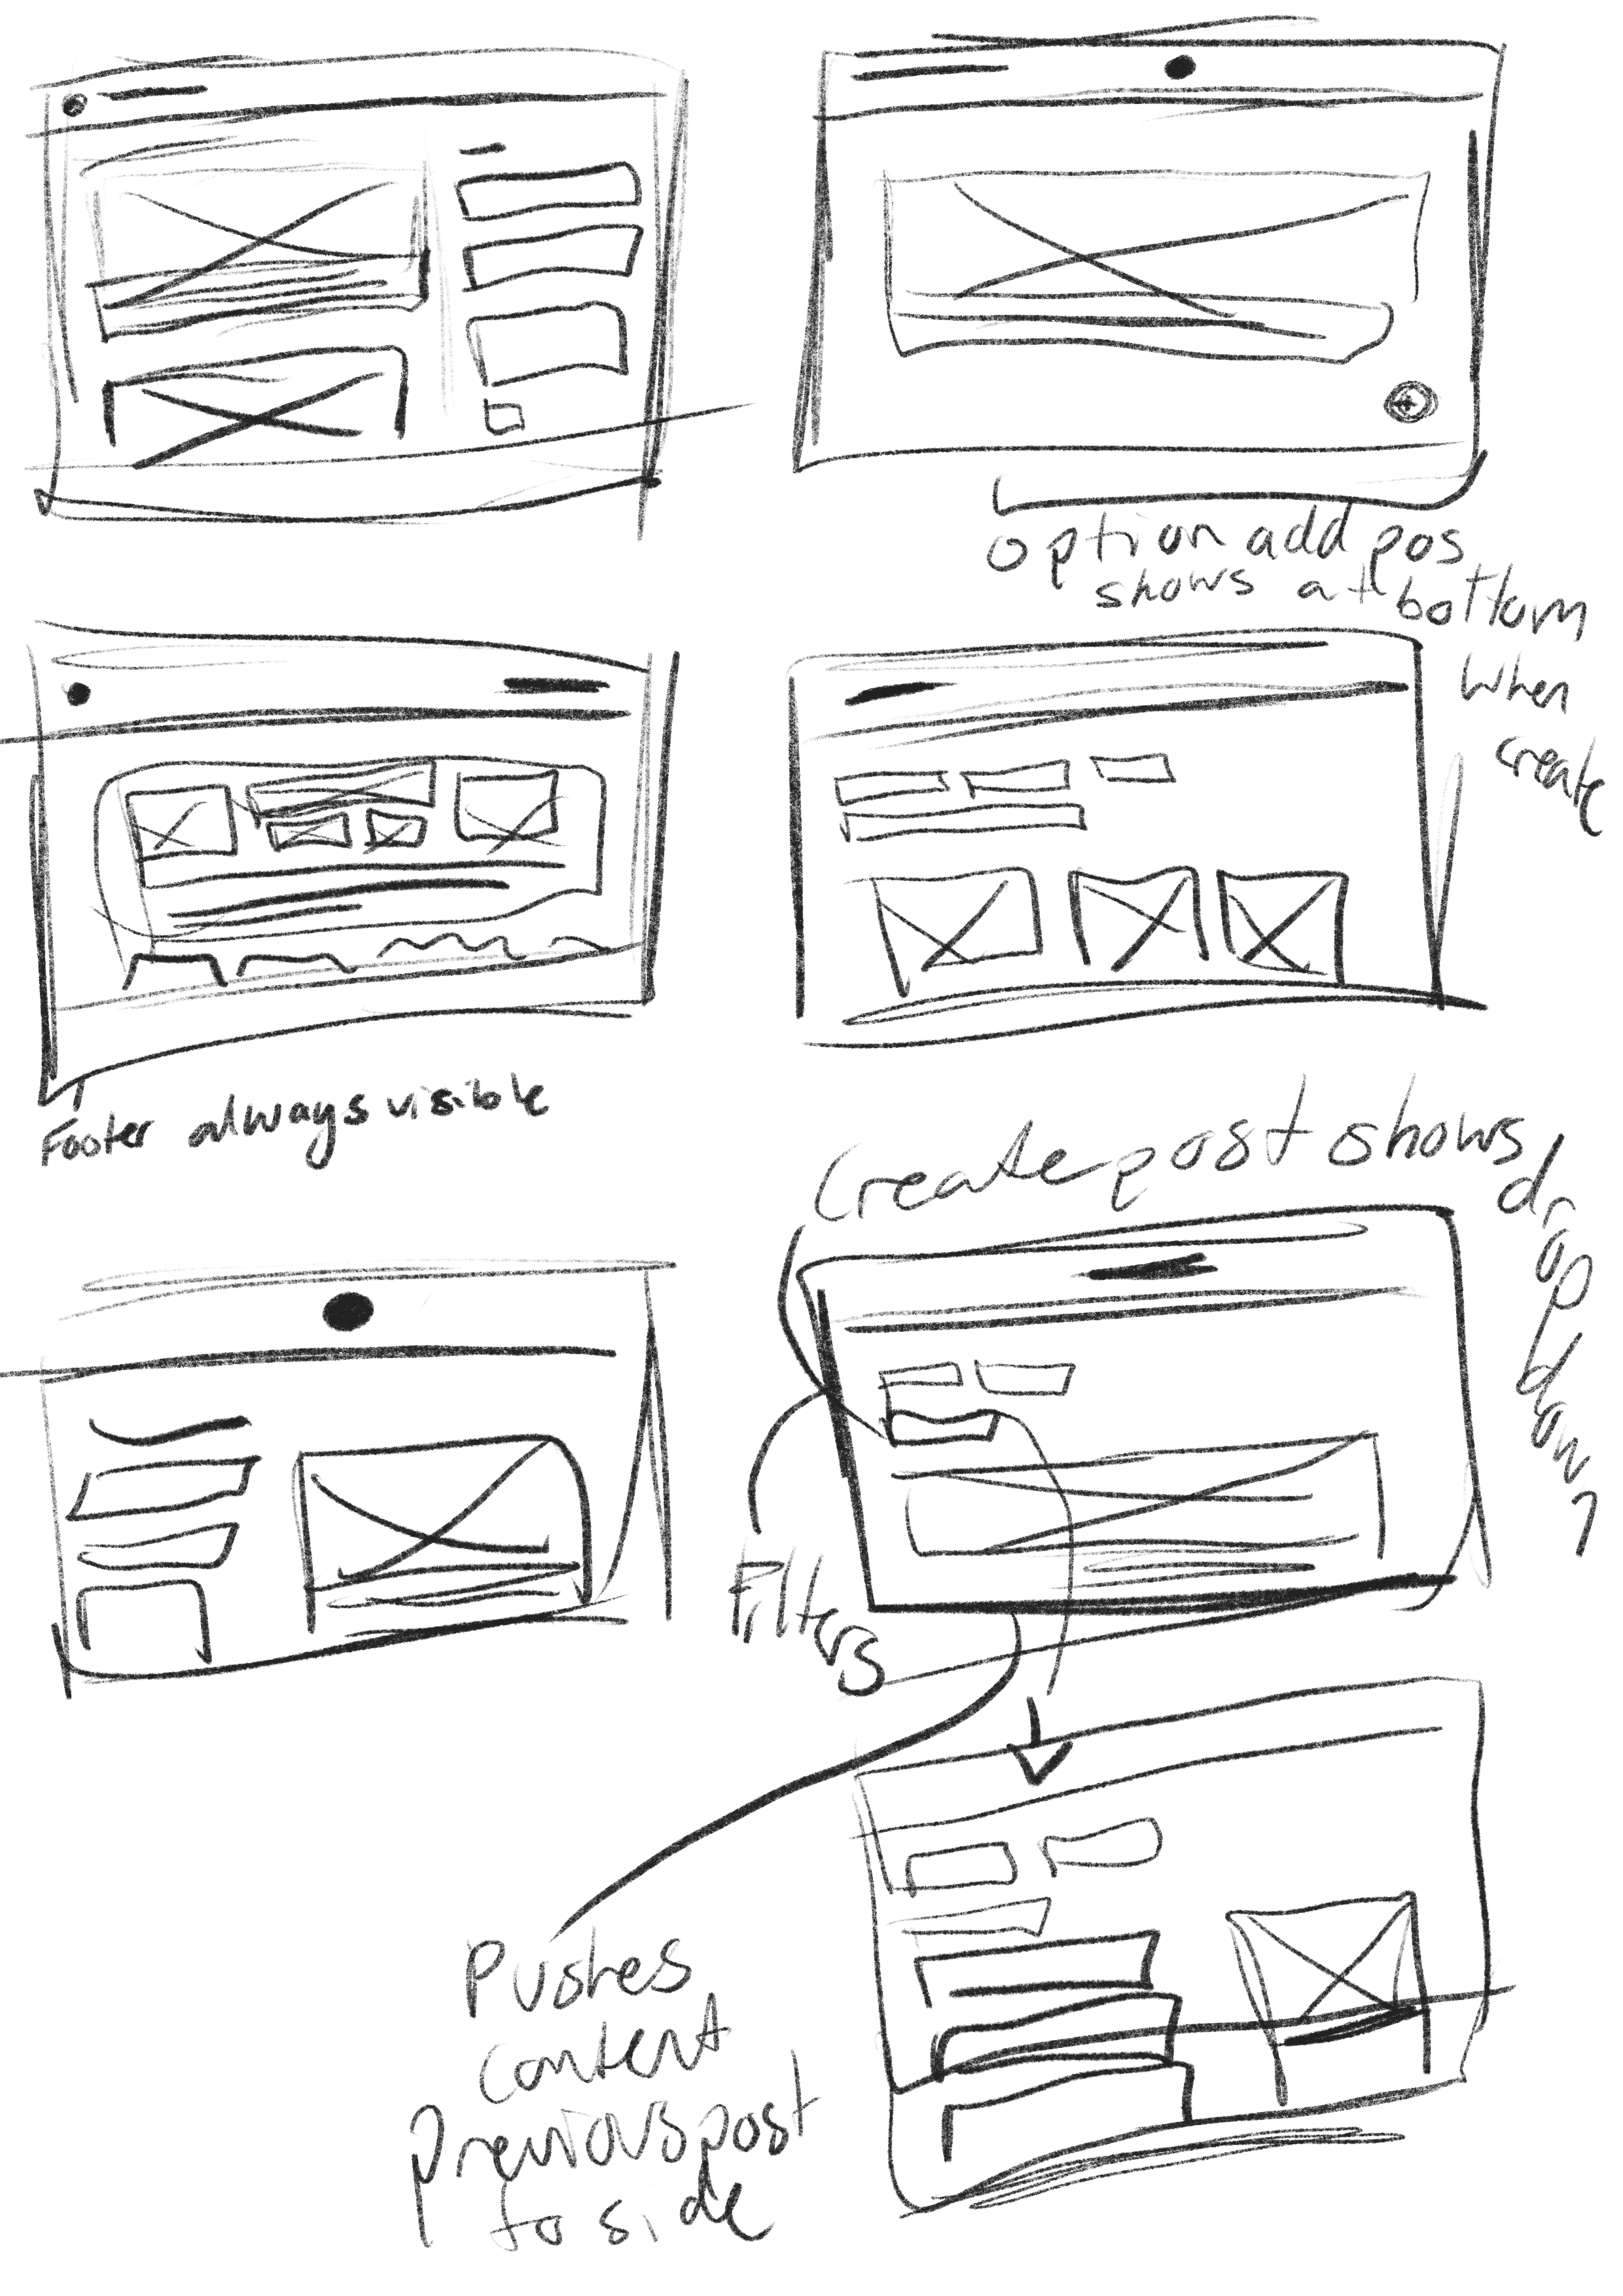 option add pos
shows at bottom
when
create
Footer always visible
Create post shows
dropdown
Filters
Pushes
content
previous post
to side